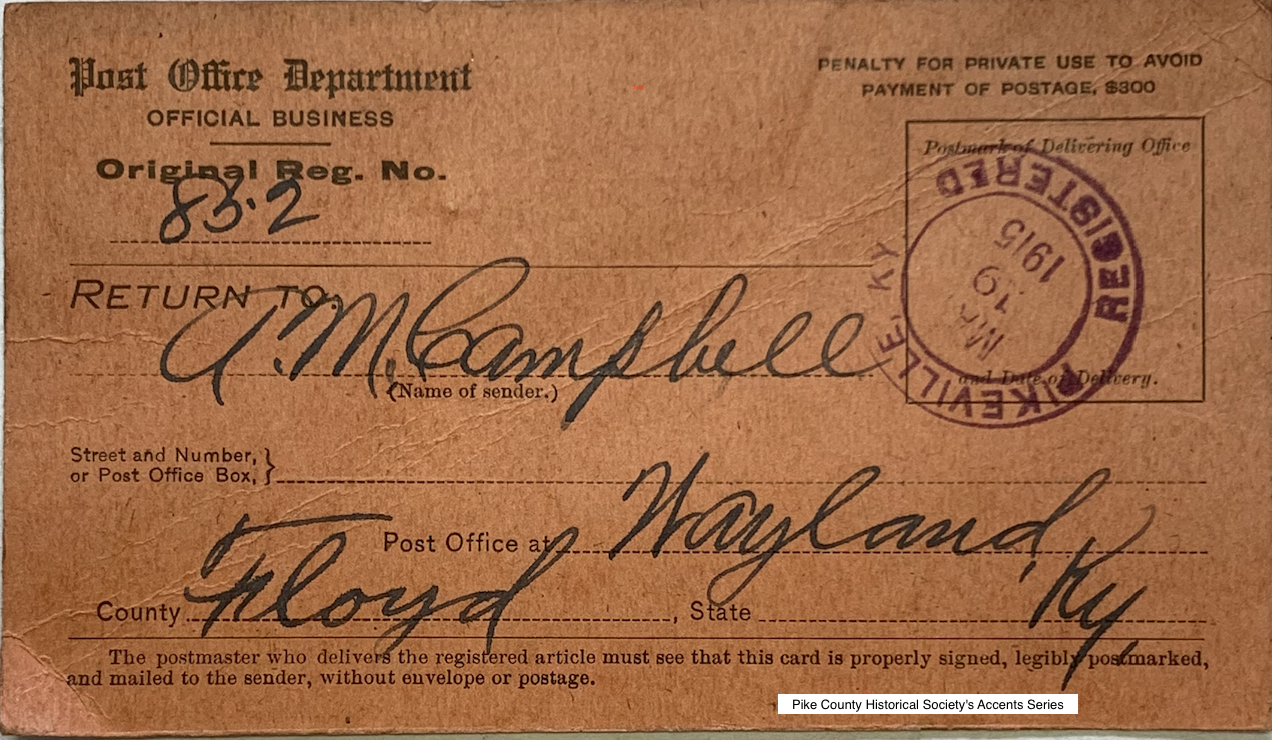 Post Office Department
OFFICIAL BUSINESS
Original Reg. No.
83.2
PENALTY FOR PRIVATE USE TO AVOID
PAYMENT OF POSTAGE, $300
Postmark of Delivering Office
and Date of Delivery.
PIKEVILLE, KY
REGISTERED
19
1915
RETURN TO
T. M. Campbell
(Name of sender.)
Street and Number,
or Post Office Box,
Post Office at Wayland,
County Floyd, State Ky,
The postmaster who delivers the registered article must see that this card is properly signed, legibly postmarked,
and mailed to the sender, without envelope or postage.
Pike County Historical Society's Accents Series